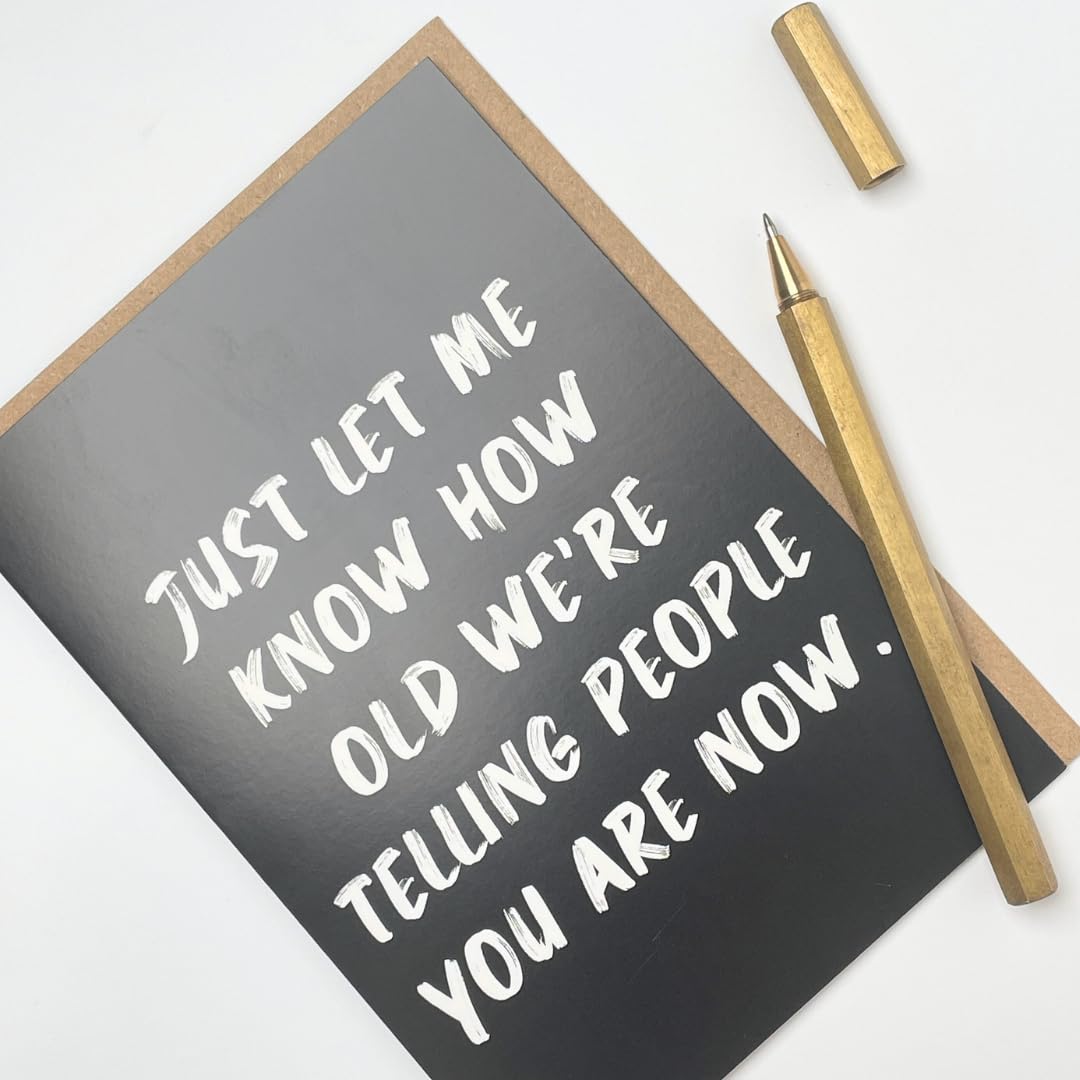 JUST LET ME
KNOW HOW
OLD WE'RE
TELLING PEOPLE
YOU ARE NOW.